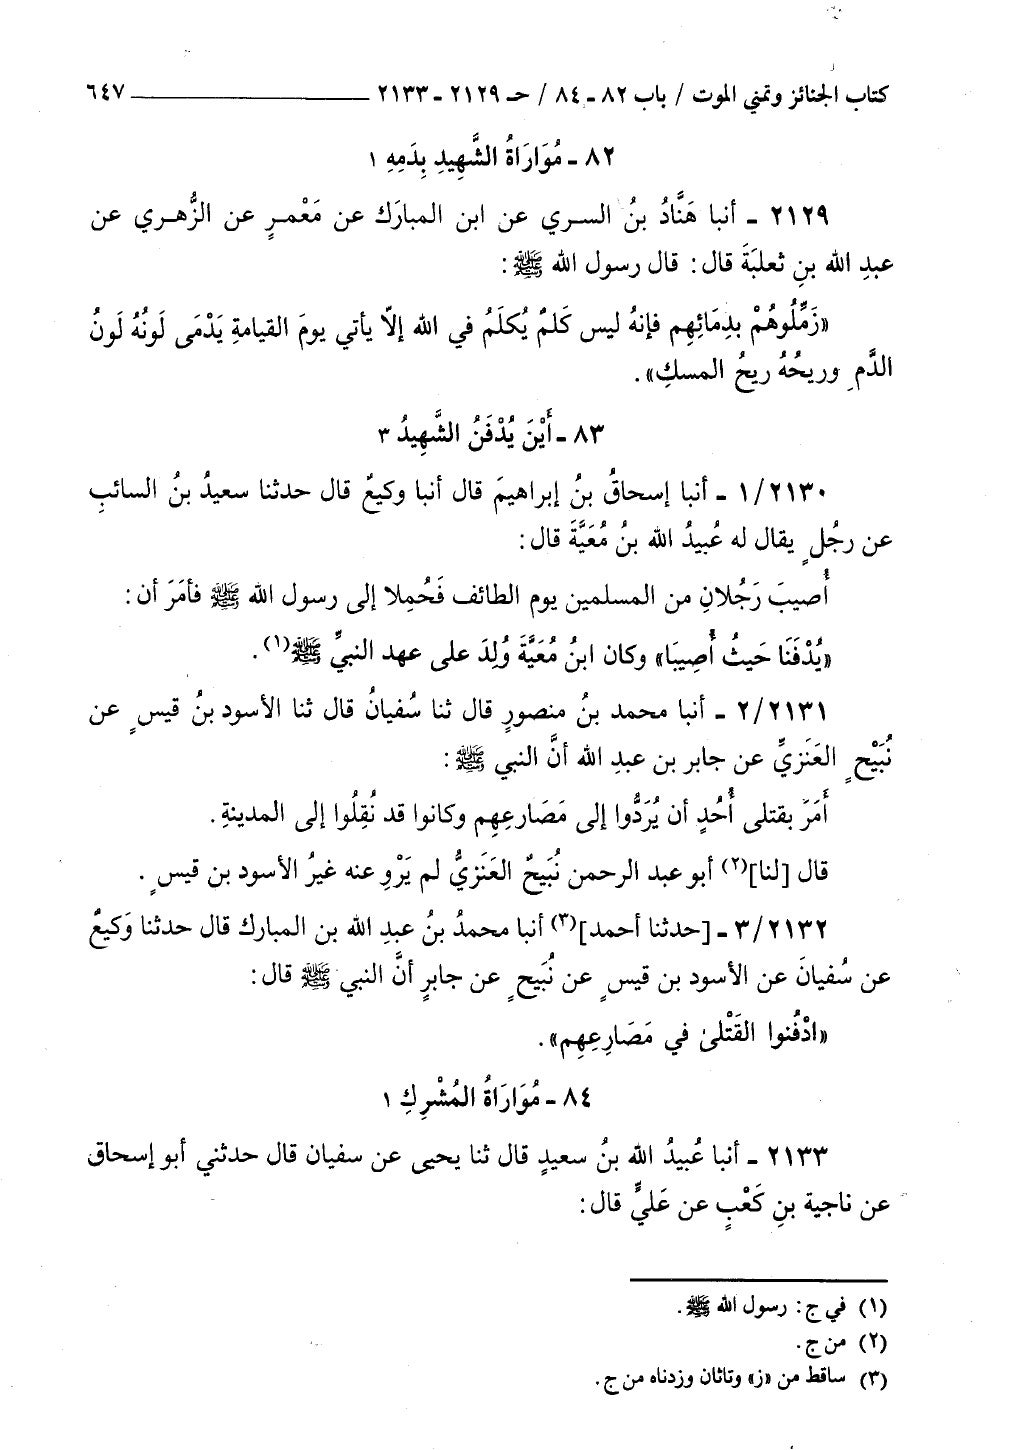 كتاب الجنائز وتمني الموت / باب ٨٢ ـ ٨٤ / حـ ٢١٢٩ ـ ٢١٣٣ ــــــــــــــــــــ ٦٤٧
٨٢ ـ مُوَارَاةُ الشَّهِيدِ بِدَمِهِ ١
٢١٢٩ ـ أنبا هَنَّادُ بنُ السري عن ابن المبارَك عن مَعْمرٍ عن الزُّهري عن
عبدِ الله بنِ ثعلبَةَ قال: قال رسول الله ﷺ:
«زَمِّلُوهُمْ بدِمَائِهِم فإنهُ ليس كَلمٌ يُكلَمُ في الله إلاّ يأتي يومَ القيامةِ يَدْمَى لَونُهُ لَونُ
الدَّمِ وريحُهُ ريحُ المسكِ».
٨٣ ـ أَيْنَ يُدْفَنُ الشَّهِيدُ ٣
١/٢١٣٠ ـ أنبا إسحاقُ بنُ إبراهيمَ قال أنبا وكيعٌ قال حدثنا سعيدُ بنُ السائبِ
عن رجُلٍ يقال له عُبيدُ الله بنُ مُعَيَّةَ قال:
أُصيبَ رَجُلانِ من المسلمين يوم الطائف فَحُملا إلى رسول الله ﷺ فأمَرَ أن:
«يُدْفَنَا حَيثُ أُصِيبَا» وكان ابنُ مُعَيَّةَ وُلِدَ على عهد النبيِّ ﷺ(١).
٢/٢١٣١ ـ أنبا محمد بنُ منصورٍ قال ثنا سُفيانُ قال ثنا الأسود بنُ قيسٍ عن
نُبَيْحٍ العَنَزيِّ عن جابر بن عبدِ الله أنَّ النبي ﷺ:
أَمَرَ بقتلى أُحُدٍ أن يُرَدُّوا إلى مَصَارعِهِم وكانوا قد نُقِلُوا إلى المدينةِ.
قال [لنا](٢) أبو عبد الرحمن نُبَيحٌ العَنَزيُّ لم يَرْوِ عنه غيرُ الأسود بن قيسٍ.
٣/٢١٣٢ ـ [حدثنا أحمد](٣) أنبا محمدُ بنُ عبدِ الله بن المبارك قال حدثنا وَكيعٌ
عن سُفيانَ عن الأسود بن قيسٍ عن نُبَيحٍ عن جابرٍ أنَّ النبي ﷺ قال:
«ادْفُنوا القَتْلىٰ في مَصَارِعِهِم».
٨٤ ـ مُوَارَاةُ المُشْرِكِ ١
٢١٣٣ ـ أنبا عُبيدُ الله بنُ سعيدٍ قال ثنا يحيى عن سفيان قال حدثني أبو إسحاق
عن ناجية بنِ كَعْبٍ عن عَليٍّ قال:
(١) في ج: رسول الله ﷺ.
(٢) من ج.
(٣) ساقط من «ز» وتاثان وزدناه من ج.